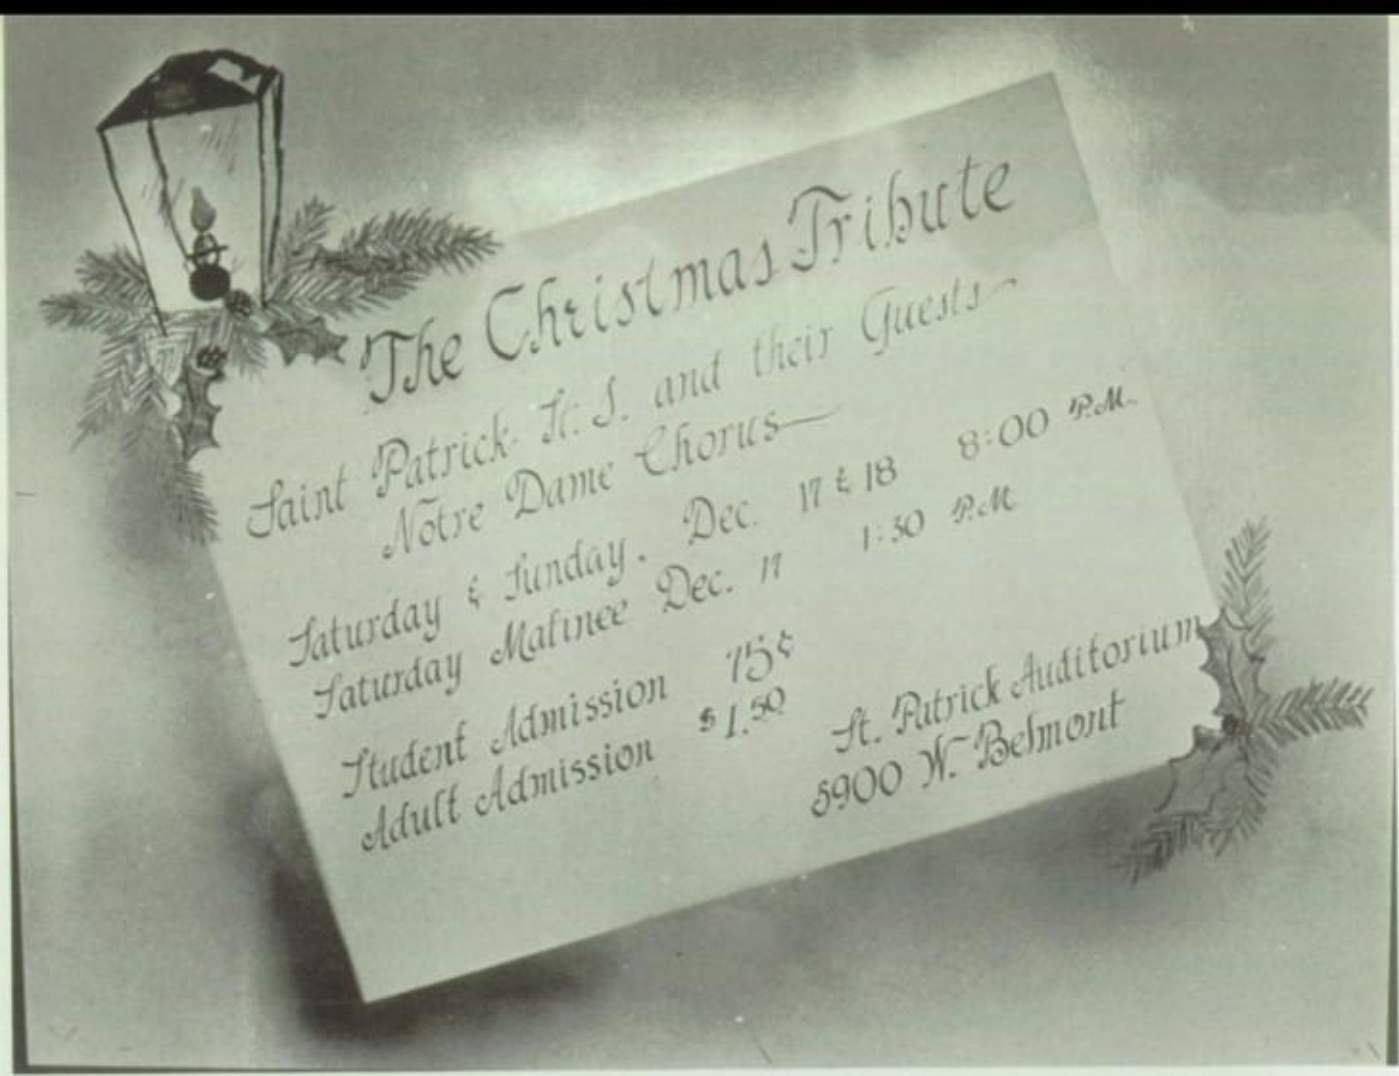 The Christmas Tribute
Saint Patrick H. S. and their Guests
Notre Dame Chorus
Saturday & Sunday. Dec. 17 & 18 8:00 P.M.
Saturday Matinee Dec. 17 1:30 P.M
Student Admission 75¢
Adult Admission $1.50
St. Patrick Auditorium
5900 W. Belmont